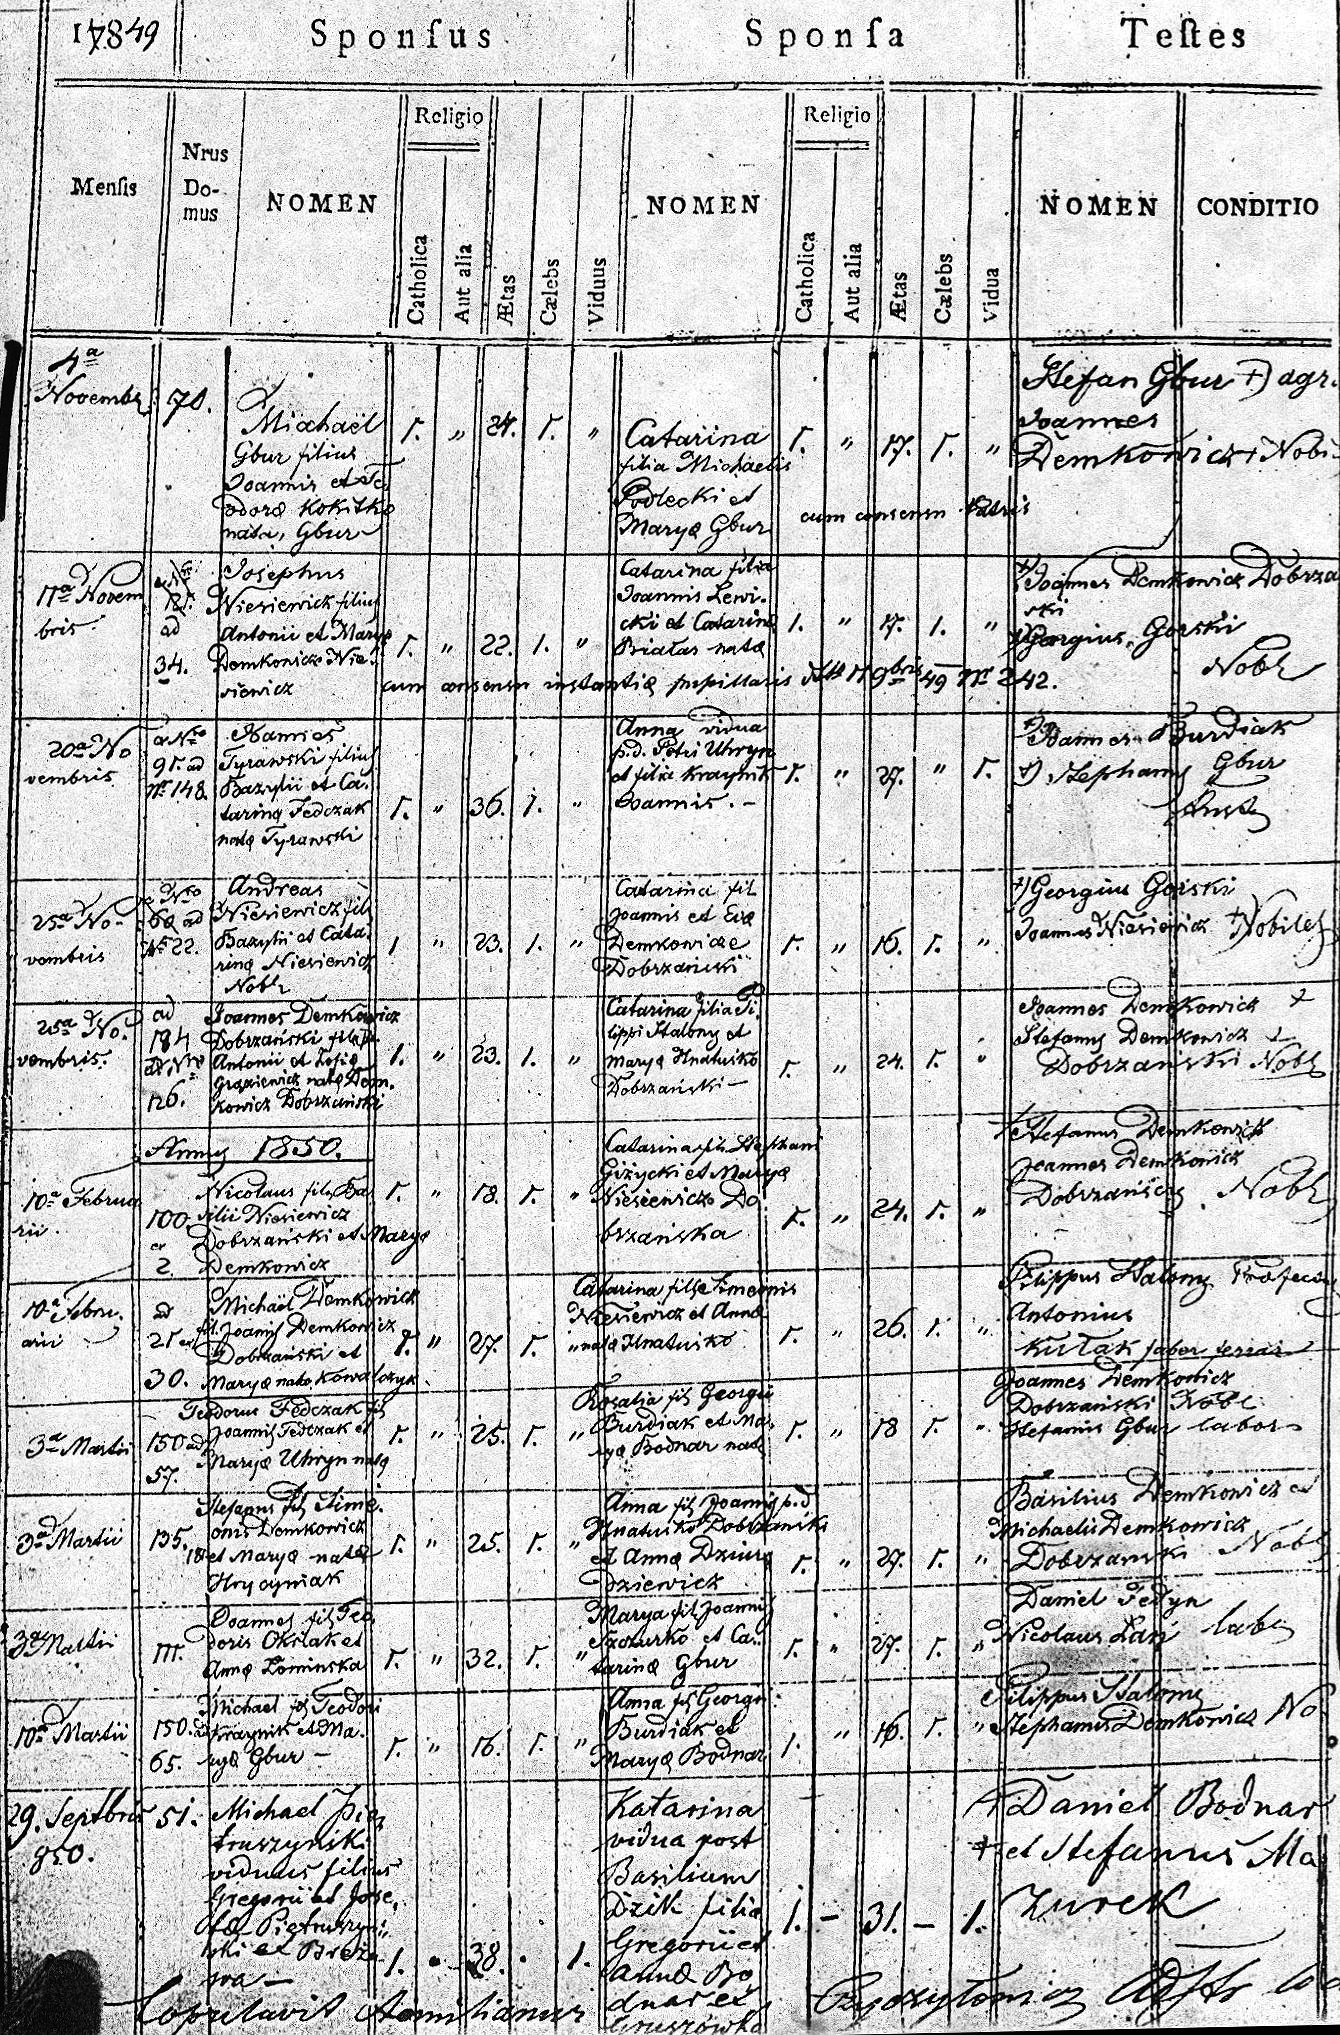 Sponsus Sponsa Testes
Religio Religio
Mensis Nrus Do- mus NOMEN Catholica Aut alia Ætas Cælebs Viduus NOMEN Catholica Aut alia Ætas Cælebs Vidua NOMEN CONDITIO
4a
Novembr 70.
Michaël
Gbur filius
Joannis et Te
odoræ Kokitko
natæ, Gbur
1. " 24. 1. "
Catarina
filia Michaelis
et
Maryæ Gbur
1. " 17. 1. "
cum consensu Patris
Stefan Gbur +) agr.
Joannes
Demkowicz + Nobi
17a Novem
bris.
ad
34.
Josephus
Niesiewicz filius
Antonii et Maryæ
Demkowicz Nie-
siewicz
1. " 22. 1. "
Catarina filia
Joannis Lewi-
cki et Catarinæ
Białas natæ
1. " 17. 1. "
cum consensu instantiæ pupillaris 9bris 49 Nr 242.
+) Joannes Demkowicz Dobrzań
ski
+) Georgius Gorski
Nobl
20a No
vembris
a Nro
91 ad
Nr 148.
Joannes
Tyrawski filius
Bazylii et Ca-
tarinæ Fedczak
natæ Tyrawski
1. " 36. 1. "
Anna vidua
p.d. Petri Uhryn
et filia Kraynik
Joannis. -
1. " 27. " 1.
+) Joannes Burdiak
+) Stephanus Gbur
25a No-
vembris
a Nro
62 ad
Nr 22.
Andreas
Niesiewicz fil
Bazylii et Cata-
rinæ Niesiewicz
Nobl
1 " 23. 1. "
Catarina fil
Joannis et Evæ
Demkowicze
Dobrzański
1. " 16. 1. "
+) Georgius Gorski
Joannes Niesiewicz +) Nobiles
25a No-
vembris.
ad
184
ad Nro
126.
Joannes Demkowicz
Dobrzański filius
Antonii et Zofiæ
Graziewicz natæ Dem-
kowicz Dobrzański
1. " 23. 1. "
Catarina filia Fi-
lippi Stalony et
Maryæ Hnatuśko
Dobrzański -
1. " 24. 1. "
Joannes Demkowicz +
Stefanus Demkowicz +
Dobrzański Nobl
Annus 1850.
10a Februa
rii.
100
2.
Nicolaus fil Ba
silii Niesiewicz
Dobrzański et Maryæ
Demkowicz
1. " 18. 1. "
Catarina fil Stephani
Giżycki et Maryæ
Niesiewicz Do
brzańska
1. " 24. 1. "
+ Stefanus Demkowicz
Joannes Demkowicz
Dobrzańscy Nobl
10a Febru-
arii
ad
30.
Michaël Demkowicz
fil. Joannis Demkowicz
Dobrzański et
Maryæ natæ Kowalczyk
1. " 27. 1. "
Catarina filiæ Simeonis
Niesiewicz et Annæ
natæ Hnatuśko
1. " 26. 1. "
Filippus Stalony
Antonius
Kułak faber ferrar
3a Martii
150 ad
57.
Teodorus Fedczak fil
Joannis Fedczak et
Maryæ Uhryn natæ
1. " 25. 1. "
Rosalia fil Georgii
Burdiak et Ma-
ryæ Bodnar natæ
1. " 18 1. "
Joannes Demkowicz
Dobrzański Nobl
Stefanus Gbur labor
3a Martii
135.
Stefanus fil Sime-
onis Demkowicz
et Maryæ natæ
Hrycyniak
1. " 25. 1. "
Anna fil Joannis p.d
Hnatuśko Dobrzański
et Annæ
1. " 27. 1. "
Basilius Demkowicz et
Michaelis Demkowicz
Dobrzański Nobl
3a Martii
111.
Joannes fil Teo
doris Okślak et
Annæ Łominska
1. " 32. 1. "
Marya fil Joannis
Szczurko et Ca-
tarinæ Gbur
1. " 27. 1. "
Daniel Fedyn
Nicolaus Łań lab
10a Martii
150. ad
65.
Michael fil Teodori
Kraynik et Ma-
ryæ Gbur -
1. " 16. 1. "
Anna fil Georgii
Burdiak et
Maryæ Bodnar
1. " 16. 1. "
Filippus Stalony
Stephanus Demkowicz No
29. Septbris
850.
51.
Michael Pie
truszyński
viduus filius
Gregorii et Jose-
fæ Pietruszyń-
ski et Breze
wa -
1. 38. 1.
Katarina
vidua post
Basilium
Dzik filia
Gregorii et
Annæ Bo
dnar et
Gruszówka
1. - 31. - 1.
+ Daniel Bodnar
+ et Stefanus Ma
zurek
Copulavit